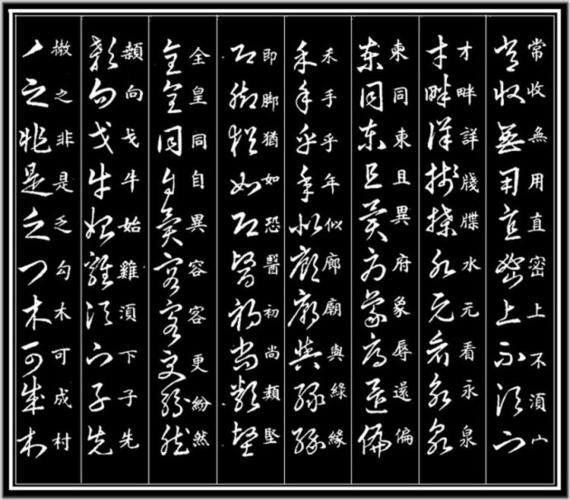 常收無用直密上不湏宀
才畔詳牋牒水元看永泉
東同東且異府象辱還偏
禾手乎年似廊廟與綠緣
即脚猶如恐醫初尚類堅
全皇同自異容容更紛然
頴向戈牛始雞湏下子先
撇之非是乏勾木可成村